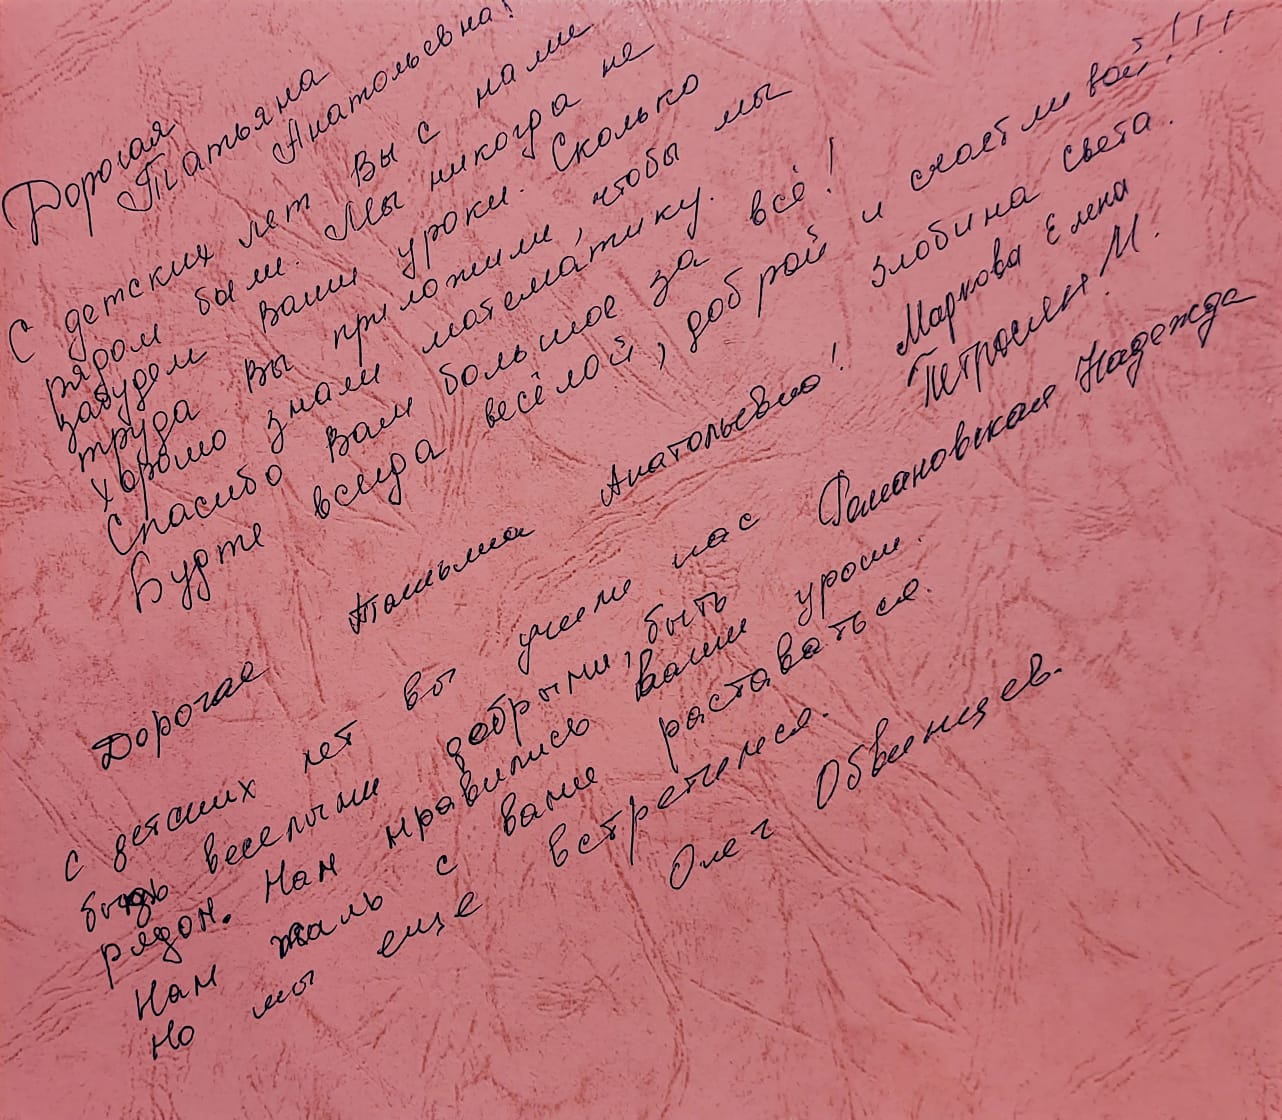 Дорогая
Татьяна
Анатольевна!
С детских лет Вы с нами
рядом были. Мы никогда не
забудем Ваши уроки. Сколько
труда Вы приложили, чтобы мы
хорошо знали математику.
Спасибо Вам большое за всё!
Будте всегда весёлой, доброй и счастливой!!!
Злобина Света.
Маркова Елена
Петросян М.
Романовская Надежда
Дорогая Татьяна Анатольевна!
с детских лет вы учили нас
быть веселыми добрыми, быть
рядом. Нам нравились Ваши уроки.
Нам жаль с вами раставаться.
Но мы еще встретимся.
Олег Обвинцев.